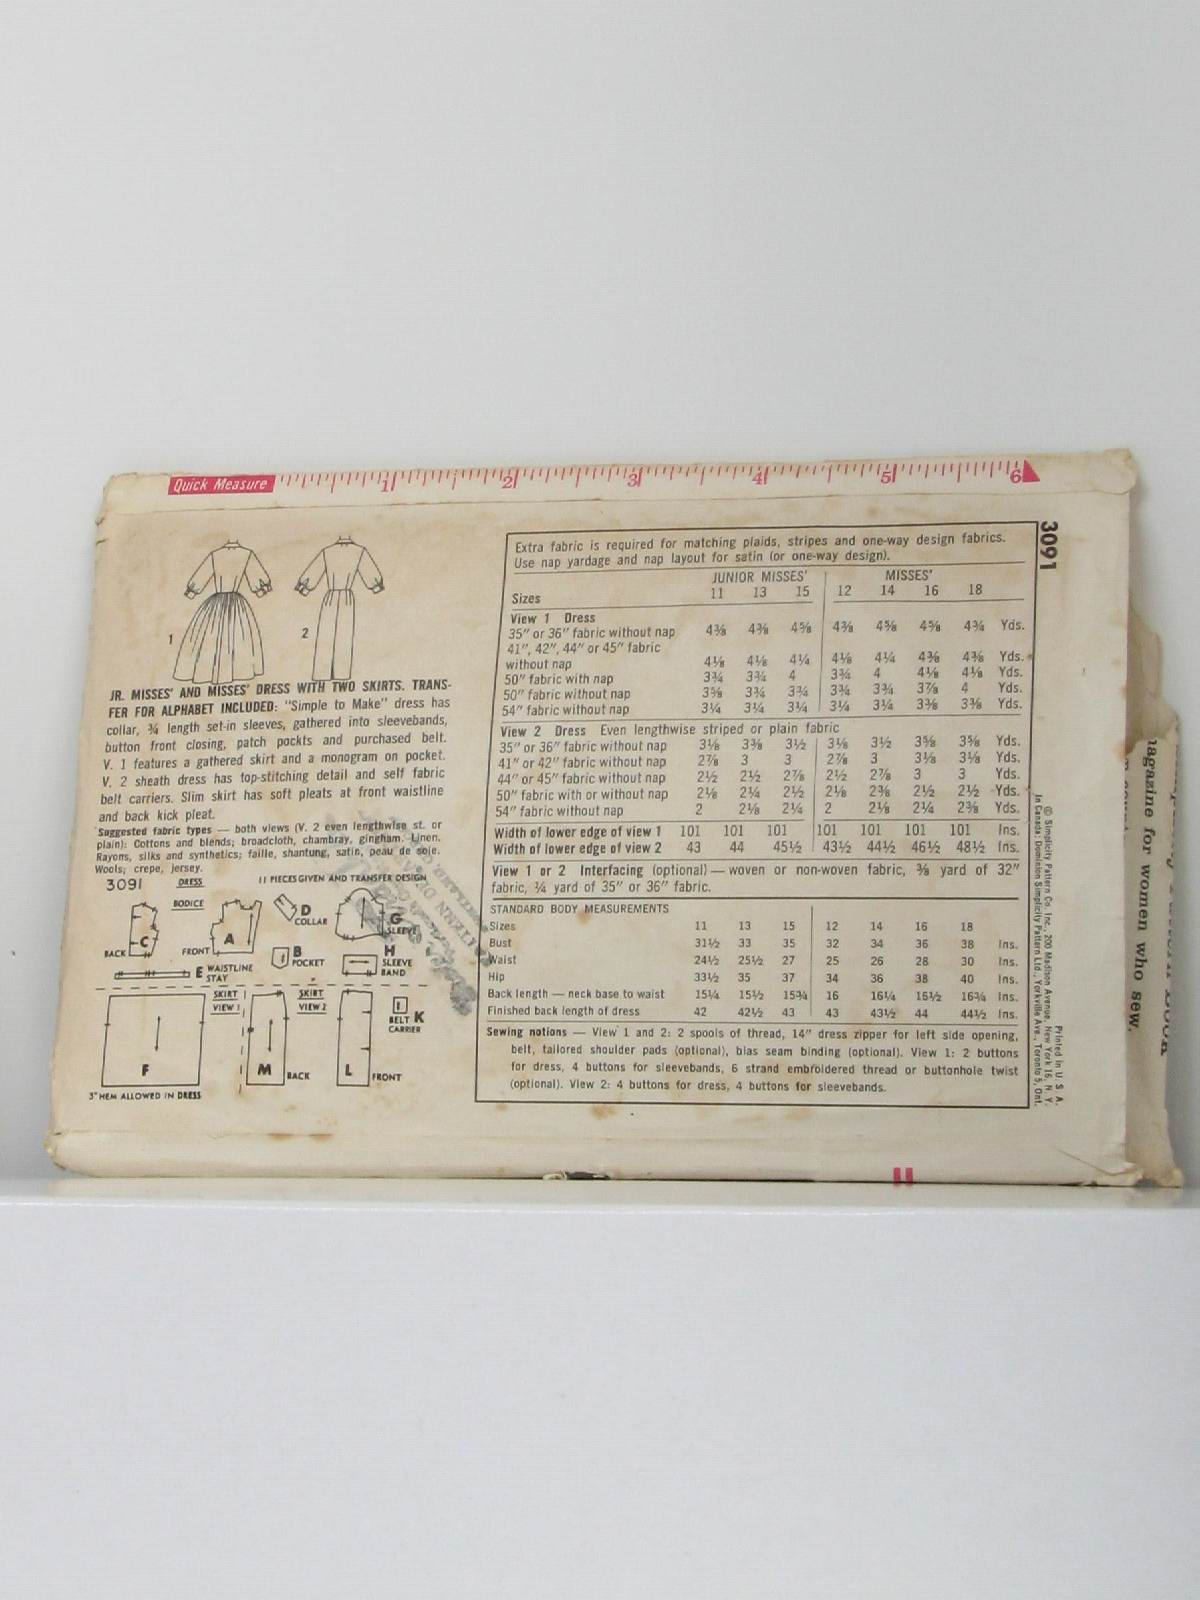 Quick Measure 1 2 3 4 5 6
3091
1
2
JR. MISSES' AND MISSES' DRESS WITH TWO SKIRTS. TRANS-
FER FOR ALPHABET INCLUDED: "Simple to Make" dress has
collar, ¾ length set-in sleeves, gathered into sleevebands,
button front closing, patch pockts and purchased belt.
V. 1 features a gathered skirt and a monogram on pocket.
V. 2 sheath dress has top-stitching detail and self fabric
belt carriers. Slim skirt has soft pleats at front waistline
and back kick pleat.
Suggested fabric types — both views (V. 2 even lengthwise st. or
plain): Cottons and blends; broadcloth, chambray, gingham. Linen.
Rayons, silks and synthetics; faille, shantung, satin, peau de soie.
Wools; crepe, jersey.
3091 DRESS 11 PIECES GIVEN AND TRANSFER DESIGN
BODICE
BACK C
FRONT A
D COLLAR
G SLEEVE
B POCKET
H SLEEVE BAND
E WAISTLINE STAY
SKIRT VIEW 1
SKIRT VIEW 2
BELT K CARRIER
F
M BACK
L FRONT
3" HEM ALLOWED IN DRESS
Extra fabric is required for matching plaids, stripes and one-way design fabrics.
Use nap yardage and nap layout for satin (or one-way design).
JUNIOR MISSES' MISSES'
Sizes 11 13 15 12 14 16 18
View 1 Dress
35" or 36" fabric without nap 4⅜ 4⅜ 4⅝ 4⅜ 4⅝ 4⅝ 4¾ Yds.
41", 42", 44" or 45" fabric
without nap 4⅛ 4⅛ 4¼ 4⅛ 4¼ 4⅜ 4⅜ Yds.
50" fabric with nap 3¾ 3¾ 4 3¾ 4 4⅛ 4⅛ Yds.
50" fabric without nap 3⅝ 3¾ 3¾ 3¾ 3¾ 3⅞ 4 Yds.
54" fabric without nap 3¼ 3¼ 3¼ 3¼ 3¼ 3⅜ 3⅜ Yds.
View 2 Dress Even lengthwise striped or plain fabric
35" or 36" fabric without nap 3⅛ 3⅜ 3½ 3⅛ 3½ 3⅝ 3⅝ Yds.
41" or 42" fabric without nap 2⅞ 3 3 2⅞ 3 3⅛ 3⅛ Yds.
44" or 45" fabric without nap 2½ 2½ 2⅞ 2½ 2⅞ 3 3 Yds.
50" fabric with or without nap 2⅛ 2¼ 2½ 2⅛ 2⅜ 2½ 2½ Yds.
54" fabric without nap 2 2⅛ 2¼ 2 2⅛ 2¼ 2⅜ Yds.
Width of lower edge of view 1 101 101 101 101 101 101 101 Ins.
Width of lower edge of view 2 43 44 45½ 43½ 44½ 46½ 48½ Ins.
View 1 or 2 Interfacing (optional) — woven or non-woven fabric, ⅜ yard of 32"
fabric, ¼ yard of 35" or 36" fabric.
STANDARD BODY MEASUREMENTS
Sizes 11 13 15 12 14 16 18
Bust 31½ 33 35 32 34 36 38 Ins.
Waist 24½ 25½ 27 25 26 28 30 Ins.
Hip 33½ 35 37 34 36 38 40 Ins.
Back length — neck base to waist 15¼ 15½ 15¾ 16 16¼ 16½ 16¾ Ins.
Finished back length of dress 42 42½ 43 43 43½ 44 44½ Ins.
Sewing notions — View 1 and 2: 2 spools of thread, 14" dress zipper for left side opening,
belt, tailored shoulder pads (optional), bias seam binding (optional). View 1: 2 buttons
for dress, 4 buttons for sleevebands, 6 strand embroidered thread or buttonhole twist
(optional). View 2: 4 buttons for dress, 4 buttons for sleevebands.
© Simplicity Pattern Co. Inc., 200 Madison Avenue, New York 16, N. Y.
In Canada: Dominion Simplicity Pattern Ltd., Yorkville Ave., Toronto 5, Ont.
Printed in U. S. A.
magazine for women who sew.